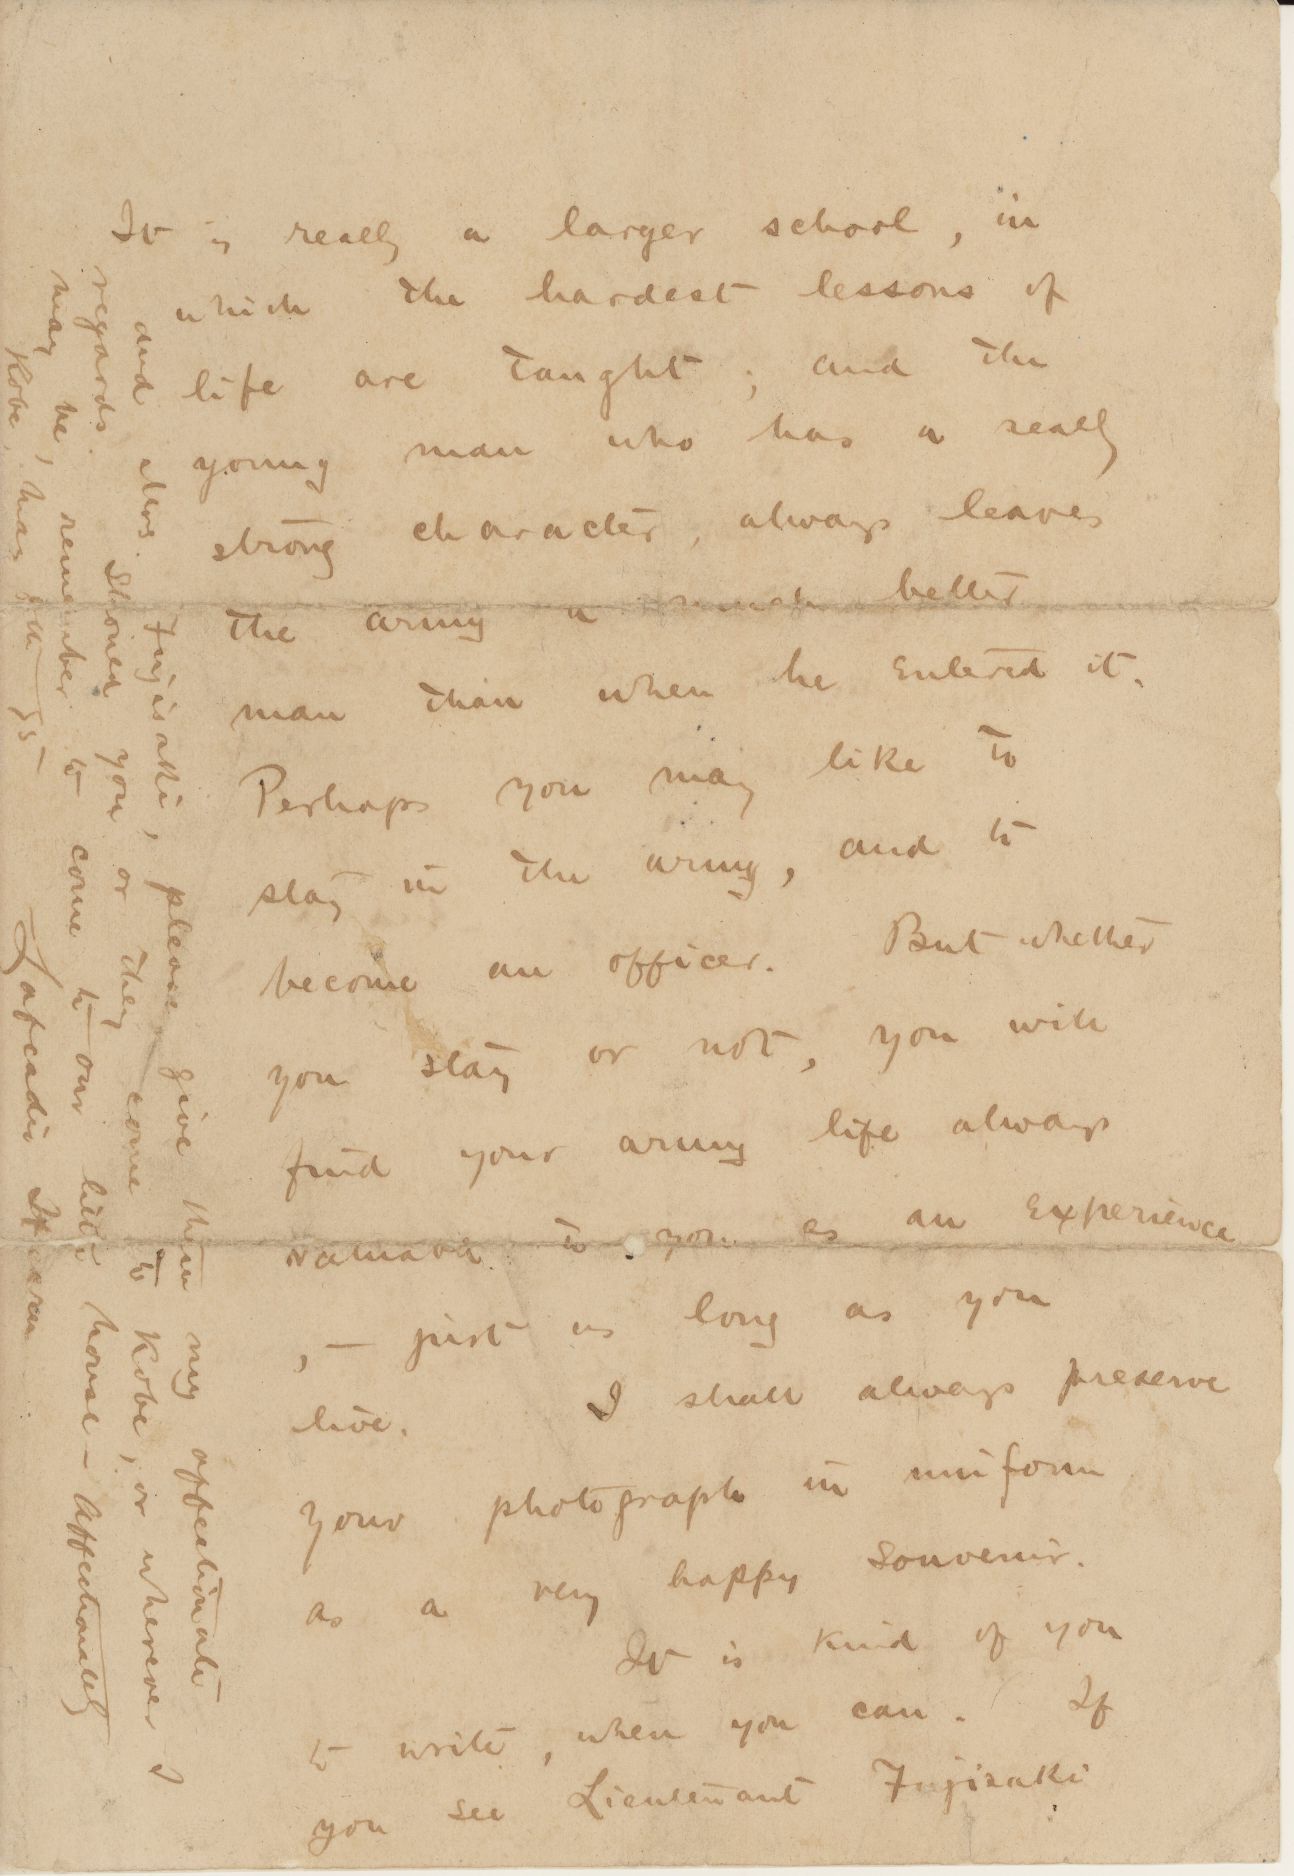 It is really a larger school, in
which the hardest lessons of
life are taught; and the
young man who has a really
strong character, always leaves
the army a much better
man than when he entered it.
Perhaps you may like to
stay in the army, and to
become an officer. But whether
you stay or not, you will
find your army life always
valuable to you as an experience
,— just as long as you
live. I shall always preserve
your photograph in uniform
as a very happy souvenir.
It is kind of you
to write, when you can. If
you see Lieutenant Fujisaki
and Mrs. Fujisaki, please give them my affectionate
regards. Should you or they come to Kobe, or wherever I
may be, remember to come to our little house – Affectionately
Lafcadio Hearn
Kobe, May